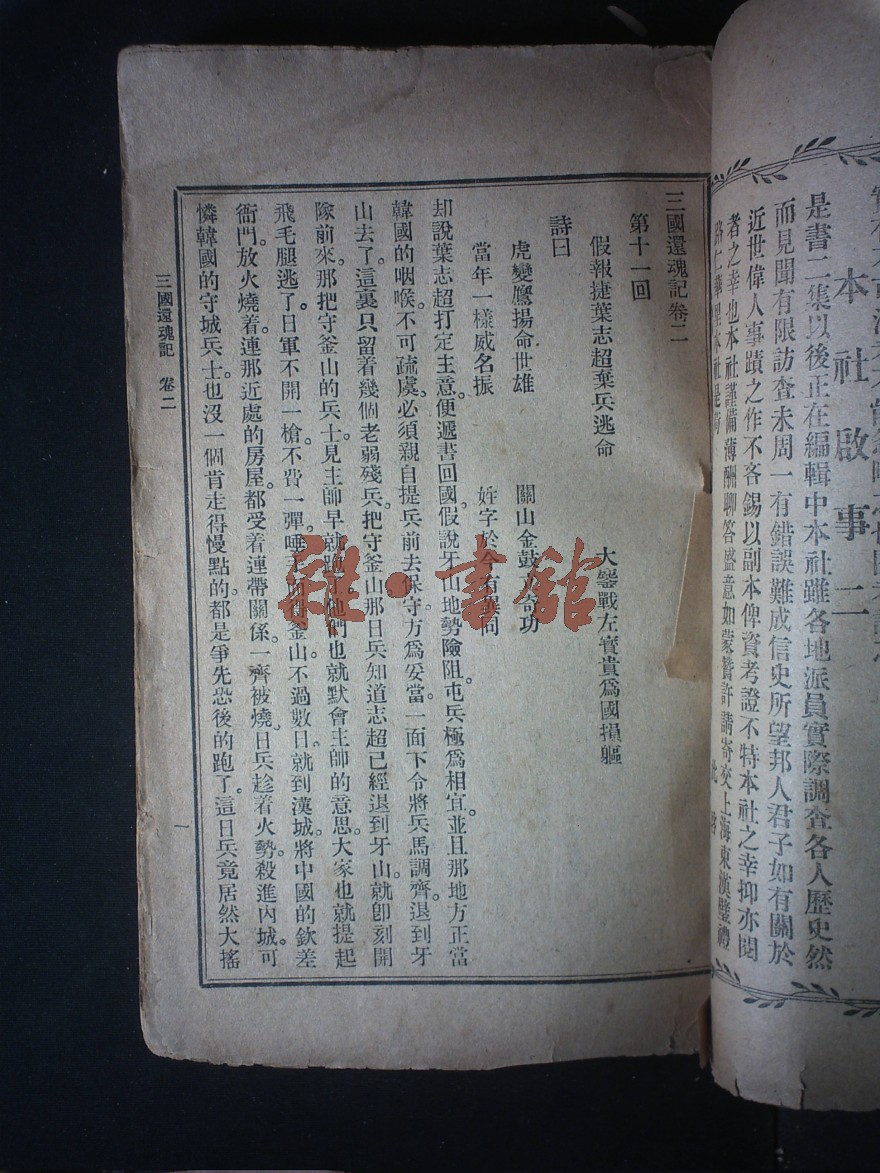 本社啟事二
是書二集以後正在編輯中本社雖各地派員實際調查各人歷史然
而見聞有限訪查未周一有錯誤難成信史所望邦人君子如有關於
近世偉人事蹟之作不吝錫以副本俾資考證不特本社之幸抑亦閱
者之幸也本社謹備薄酬聊答盛意如蒙贊許請寄交上海東漢璧禮
路仁華里本社是荷
三國還魂記卷二
第十一回
假報捷葉志超棄兵逃命 大鏖戰左寶貴爲國損軀
詩曰
虎變鷹揚命世雄 關山金鼓 奇功
當年一樣威名振 姓字於今有異同
却說葉志超打定主意。便遞書回國。假說牙山地勢險阻。屯兵極爲相宜。並且那地方正當
韓國的咽喉。不可疏虞。必須親自提兵前去保守。方爲妥當。一面下令將兵馬調齊。退到牙
山去了。這裏只留着幾個老弱殘兵。把守釜山。那日兵知道志超已經退到牙山。就卽刻開
隊前來。那把守釜山的兵士。見主師早就跑了。他們也就默會主師的意思。大家也就提起
飛毛腿逃了。日軍不開一槍。不費一彈。唾 釜山。不過數日。就到漢城。將中國的欽差
衙門。放火燒着。連那近處的房屋。都受着連帶關係。一齊被燒。日兵趁着火勢。殺進內城。可
憐韓國的守城兵士。也沒一個肯走得慢點的。都是爭先恐後的跑了。這日兵竟居然大搖
三國還魂記 卷二
一
雜·書館